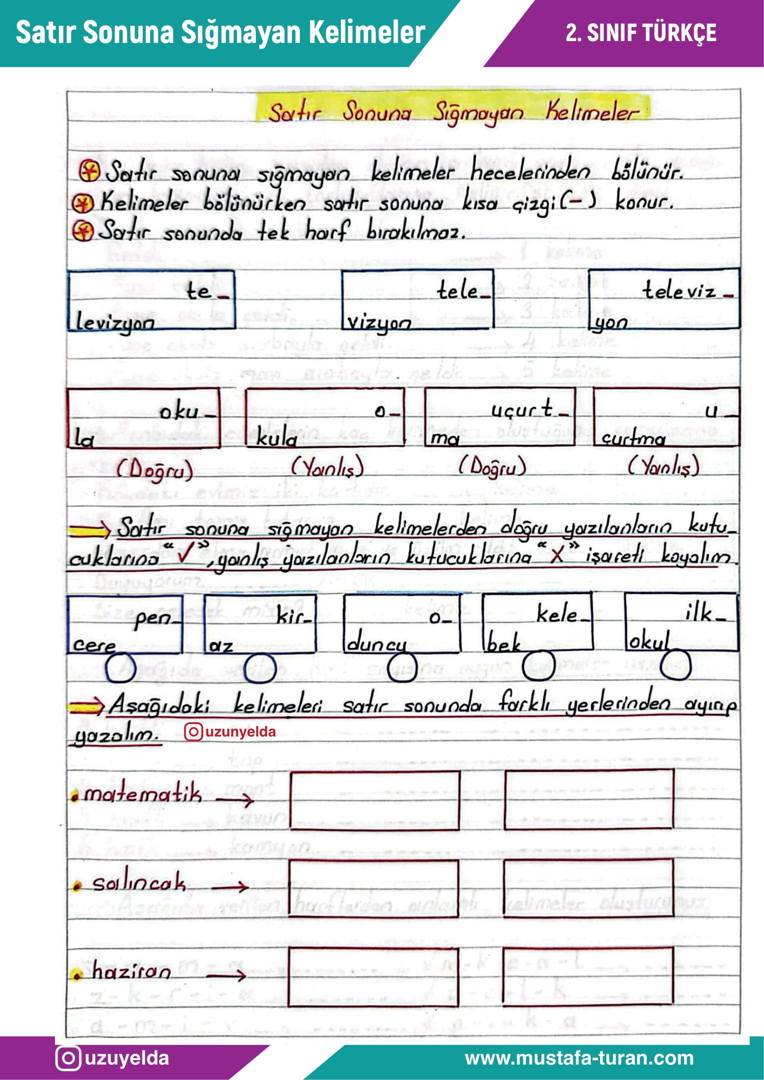 Satır Sonuna Sığmayan Kelimeler
2. SINIF TÜRKÇE
Satır Sonuna Sığmayan Kelimeler
Satır sonuna sığmayan kelimeler hecelerinden bölünür.
Kelimeler bölünürken satır sonuna kısa çizgi (-) konur.
Satır sonunda tek harf bırakılmaz.
te- tele- televiz-
levizyon vizyon yon
oku- o- uçurt- u-
la kula ma çurtma
(Doğru) (Yanlış) (Doğru) (Yanlış)
Satır sonuna sığmayan kelimelerden doğru yazılanların kutu-
cuklarına "✓", yanlış yazılanların kutucuklarına "X" işareti koyalım.
pen- kir- o- kele- ilk-
cere az duncu bek okul
Aşağıdaki kelimeleri satır sonunda farklı yerlerinden ayırıp
yazalım. uzunyelda
matematik →
salıncak →
haziran →
uzuyelda
www.mustafa-turan.com